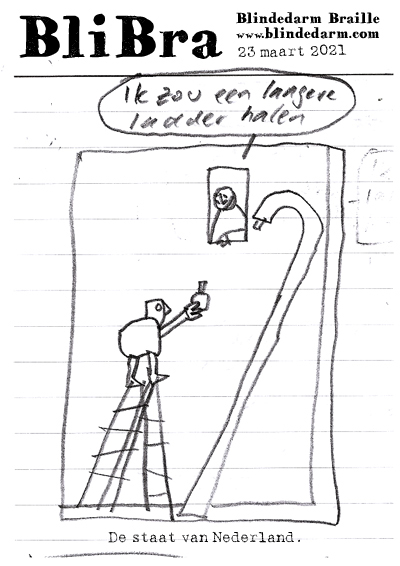 BliBra
Blindedarm Braille
www.blindedarm.com
23 maart 2021
Ik zou een langere
ladder halen
De staat van Nederland.